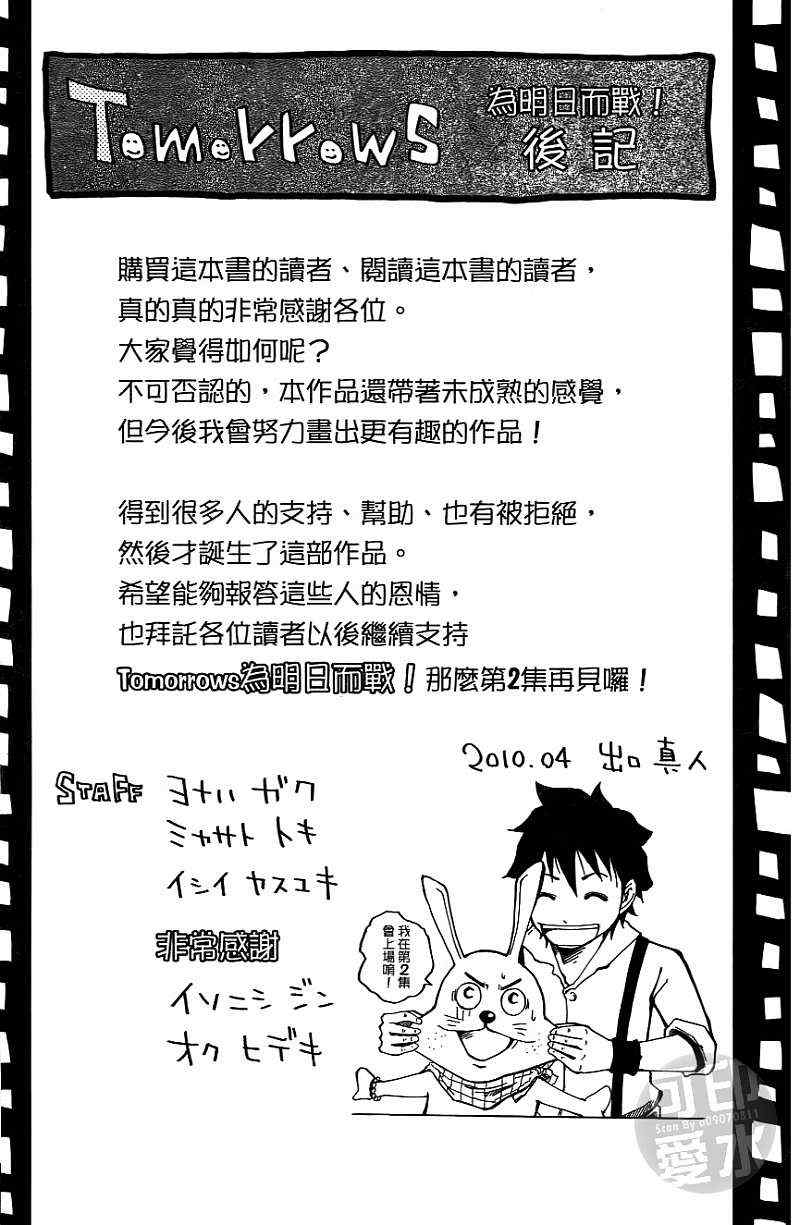 Tomorrows
為明日而戰！
後記
購買這本書的讀者、閱讀這本書的讀者，
真的真的非常感謝各位。
大家覺得如何呢？
不可否認的，本作品還帶著未成熟的感覺，
但今後我會努力畫出更有趣的作品！
得到很多人的支持、幫助、也有被拒絕，
然後才誕生了這部作品。
希望能夠報答這些人的恩情，
也拜託各位讀者以後繼續支持
Tomorrows為明日而戰！那麼第2集再見囉！
2010.04 出口真人
STAFF ヨナハ ガク
ミヤサト トキ
イシイ ヤスユキ
非常感謝
イソニシ ジン
オク ヒデキ
我在第2集
會上場唷！
可印
Scan By a09070811
愛水